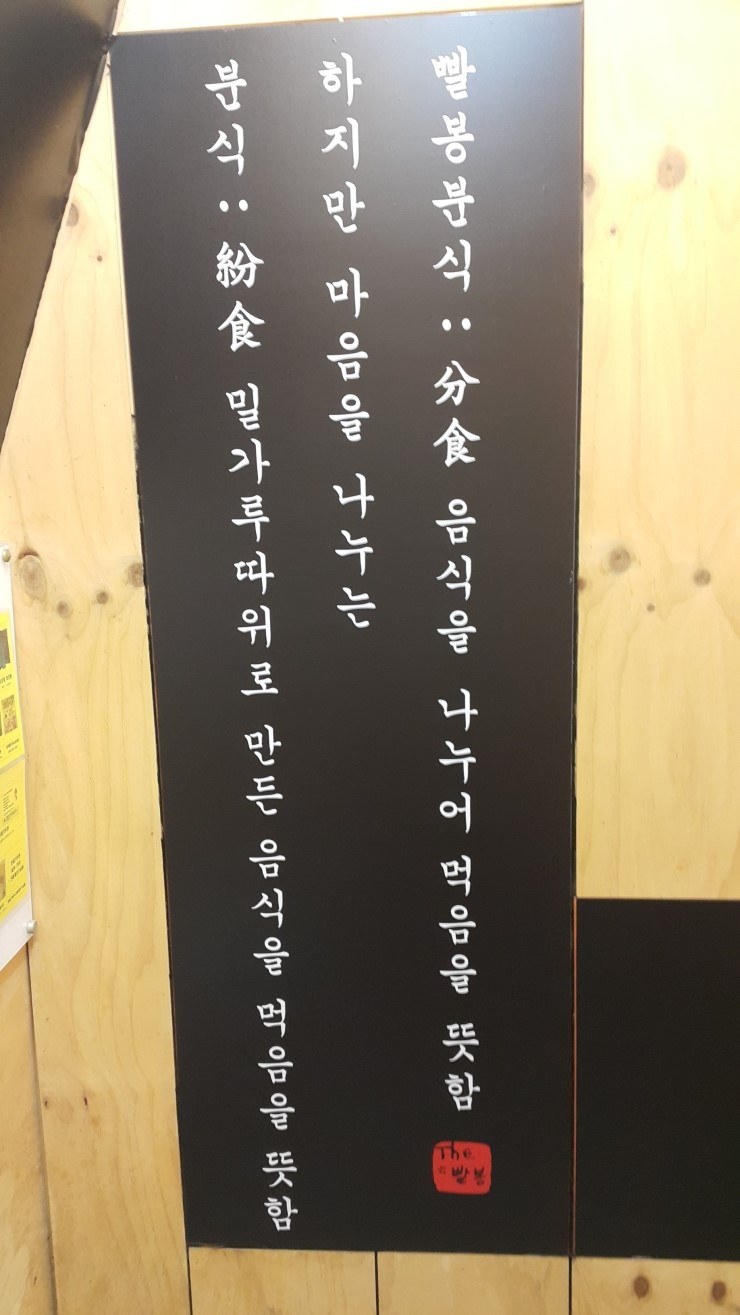 분식 : 紛食 밀가루따위로 만든 음식을 먹음을 뜻함
하지만 마음을 나누는
빨봉분식 : 分食 음식을 나누어 먹음을 뜻함
The
빨봉